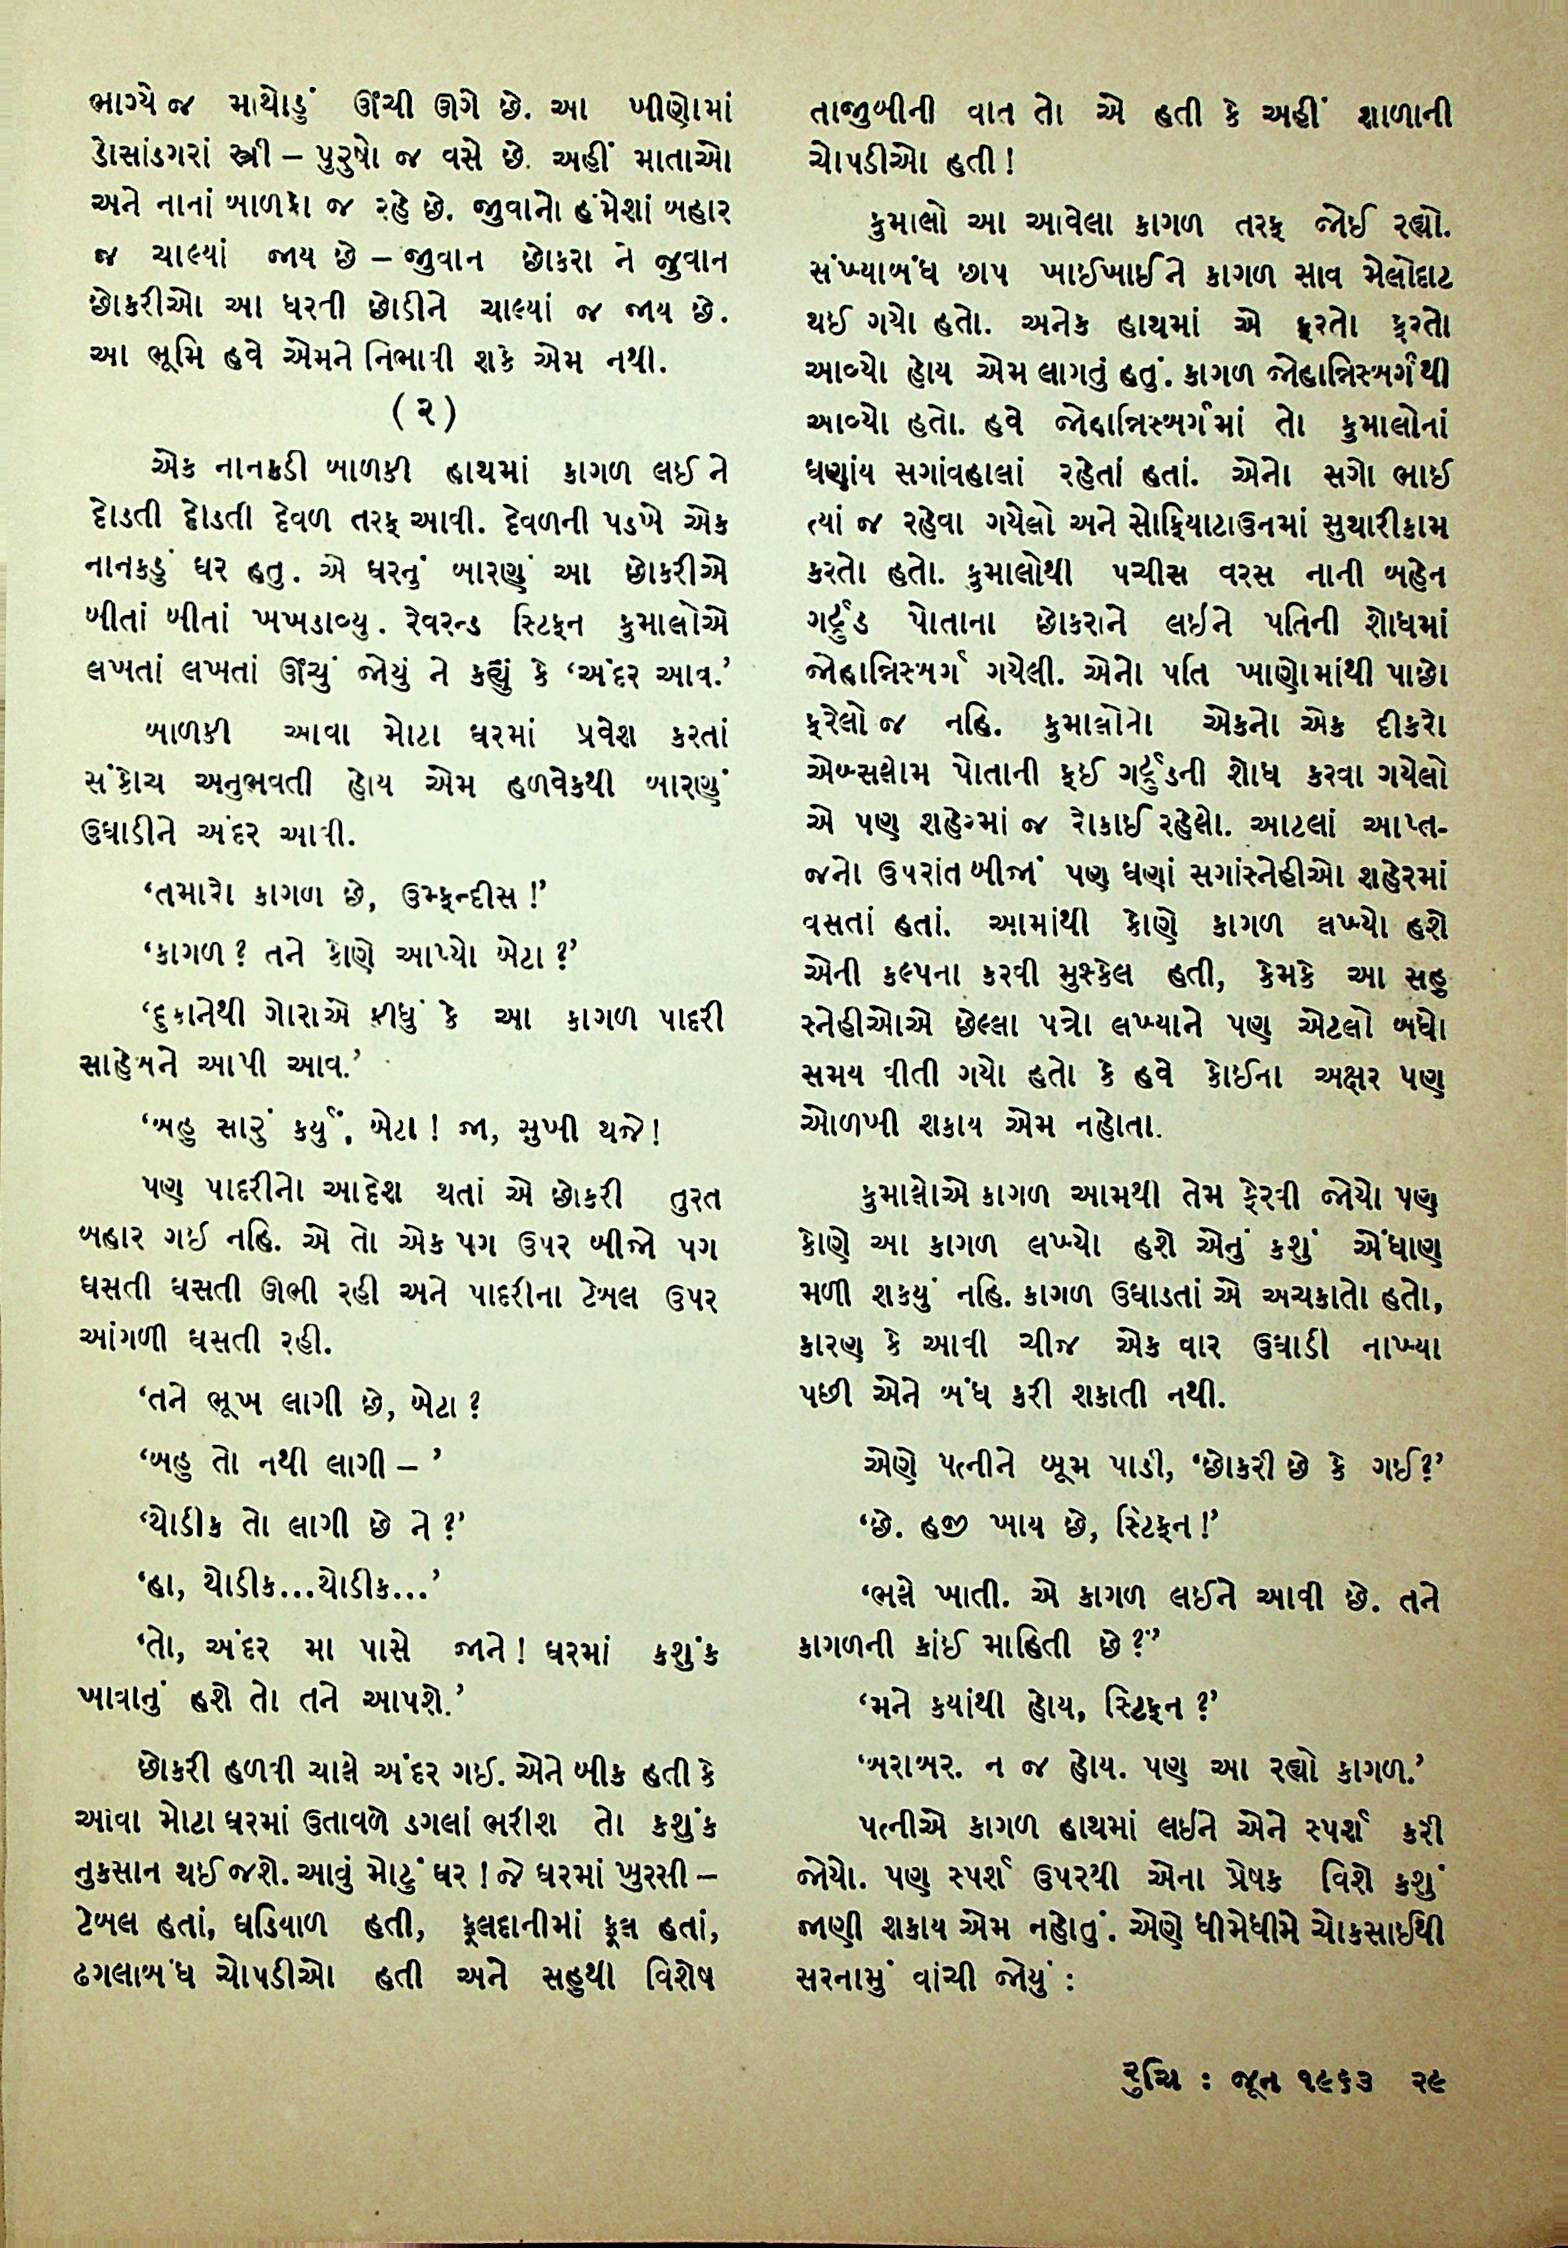 ભાગ્યે જ માથોડું ઊંચી ઊગે છે. આ ખીણોમાં
ડોસાંડગરાં સ્ત્રી – પુરુષો જ વસે છે. અહીં માતાઓ
અને નાનાં બાળકો જ રહે છે. જુવાનો હંમેશાં બહાર
જ ચાલ્યાં જાય છે – જુવાન છોકરા ને જુવાન
છોકરીઓ આ ધરતી છોડીને ચાલ્યાં જ જાય છે.
આ ભૂમિ હવે એમને નિભાવી શકે એમ નથી.
(૨)
એક નાનકડી બાળકી હાથમાં કાગળ લઈ ને
દોડતી દોડતી દેવળ તરફ આવી. દેવળની પડખે એક
નાનકડું ઘર હતુ. એ ઘરનું બારણું આ છોકરીએ
બીતાં બીતાં ખખડાવ્યુ. રેવરન્ડ સ્ટિફન કુમાલોએ
લખતાં લખતાં ઊંચું જોયું ને કહ્યું કે ‘અંદર આવ.’
બાળકી આવા મોટા ઘરમાં પ્રવેશ કરતાં
સંકોચ અનુભવતી હોય એમ હળવેકથી બારણું
ઉઘાડીને અંદર આવી.
‘તમારો કાગળ છે, ઉમ્ફન્દીસ !’
‘કાગળ ? તને કોણે આપ્યો બેટા ?’
‘દુકાનેથી ગોરાએ કીધું કે આ કાગળ પાદરી
સાહેબને આપી આવ.’
‘બહુ સારું કર્યું, બેટા ! જા, સુખી થજે !
પણ પાદરીનો આદેશ થતાં એ છોકરી તુરત
બહાર ગઈ નહિ. એ તો એક પગ ઉપર બીજો પગ
ઘસતી ઘસતી ઊભી રહી અને પાદરીના ટેબલ ઉપર
આંગળી ઘસતી રહી.
‘તને ભૂખ લાગી છે, બેટા ?
‘બહુ તો નથી લાગી – ’
‘થોડીક તો લાગી છે ને ?’
‘હા, થોડીક...થોડીક...’
‘તો, અંદર મા પાસે જાને ! ઘરમાં કશુંક
ખાવાનું હશે તો તને આપશે.’
છોકરી હળવી ચાલે અંદર ગઈ. એને બીક હતી કે
આવા મોટા ઘરમાં ઉતાવળે ડગલાં ભરીશ તો કશુંક
નુકસાન થઈ જશે. આવું મોટું ઘર ! જે ઘરમાં ખુરસી –
ટેબલ હતાં, ઘડિયાળ હતી, ફૂલદાનીમાં ફૂલ હતાં,
ઢગલાબંધ ચોપડીઓ હતી અને સહુથી વિશેષ
તાજુબીની વાત તો એ હતી કે અહીં શાળાની
ચોપડીઓ હતી !
કુમાલો આ આવેલા કાગળ તરફ જોઈ રહ્યો.
સંખ્યાબંધ છાપ ખાઈખાઈને કાગળ સાવ મેલોદાટ
થઈ ગયો હતો. અનેક હાથમાં એ ફરતો ફરતો
આવ્યો હોય એમ લાગતું હતું. કાગળ જોહાન્નિસ્બર્ગથી
આવ્યો હતો. હવે જોહાન્નિસ્બર્ગમાં તો કુમાલોનાં
ઘણાંય સગાંવહાલાં રહેતાં હતાં. એનો સગો ભાઈ
ત્યાં જ રહેવા ગયેલો અને સોફિયાટાઉનમાં સુથારીકામ
કરતો હતો. કુમાલોથી પચીસ વરસ નાની બહેન
ગર્ટ્રુડ પોતાના છોકરાને લઈને પતિની શોધમાં
જોહાન્નિસ્બર્ગ ગયેલી. એનો પતિ ખાણોમાંથી પાછો
ફરેલો જ નહિ. કુમાલોનો એકનો એક દીકરો
એબ્સલોમ પોતાની ફઈ ગર્ટ્રુડની શોધ કરવા ગયેલો
એ પણ શહેરમાં જ રોકાઈ રહેલો. આટલાં આપ્ત-
જનો ઉપરાંત બીજાં પણ ઘણાં સગાંસ્નેહીઓ શહેરમાં
વસતાં હતાં. આમાંથી કોણે કાગળ લખ્યો હશે
એની કલ્પના કરવી મુશ્કેલ હતી, કેમકે આ સહુ
સ્નેહીઓએ છેલ્લા પત્રો લખ્યાને પણ એટલો બધો
સમય વીતી ગયો હતો કે હવે કોઈના અક્ષર પણ
ઓળખી શકાય એમ નહોતા.
કુમાલોએ કાગળ આમથી તેમ ફેરવી જોયો પણ
કોણે આ કાગળ લખ્યો હશે એનું કશું એંધાણ
મળી શકયું નહિ. કાગળ ઉઘાડતાં એ અચકાતો હતો,
કારણ કે આવી ચીજ એક વાર ઉઘાડી નાખ્યા
પછી એને બંધ કરી શકાતી નથી.
એણે પત્નીને બૂમ પાડી, ‘છોકરી છે કે ગઈ?’
‘છે. હજી ખાય છે, સ્ટિફન !’
‘ભલે ખાતી. એ કાગળ લઈને આવી છે. તને
કાગળની કાંઈ માહિતી છે ?’’
‘મને કયાંથી હોય, સ્ટિફન ?’
‘બરાબર. ન જ હોય. પણ આ રહ્યો કાગળ.’
પત્નીએ કાગળ હાથમાં લઈને એને સ્પર્શ કરી
જોયો. પણ સ્પર્શ ઉપરથી એના પ્રેષક વિશે કશું
જાણી શકાય એમ નહોતું. એણે ધીમેધીમે ચોકસાઈથી
સરનામું વાંચી જોયું :
રુચિ : જૂન ૧૯૬૩ ૨૯